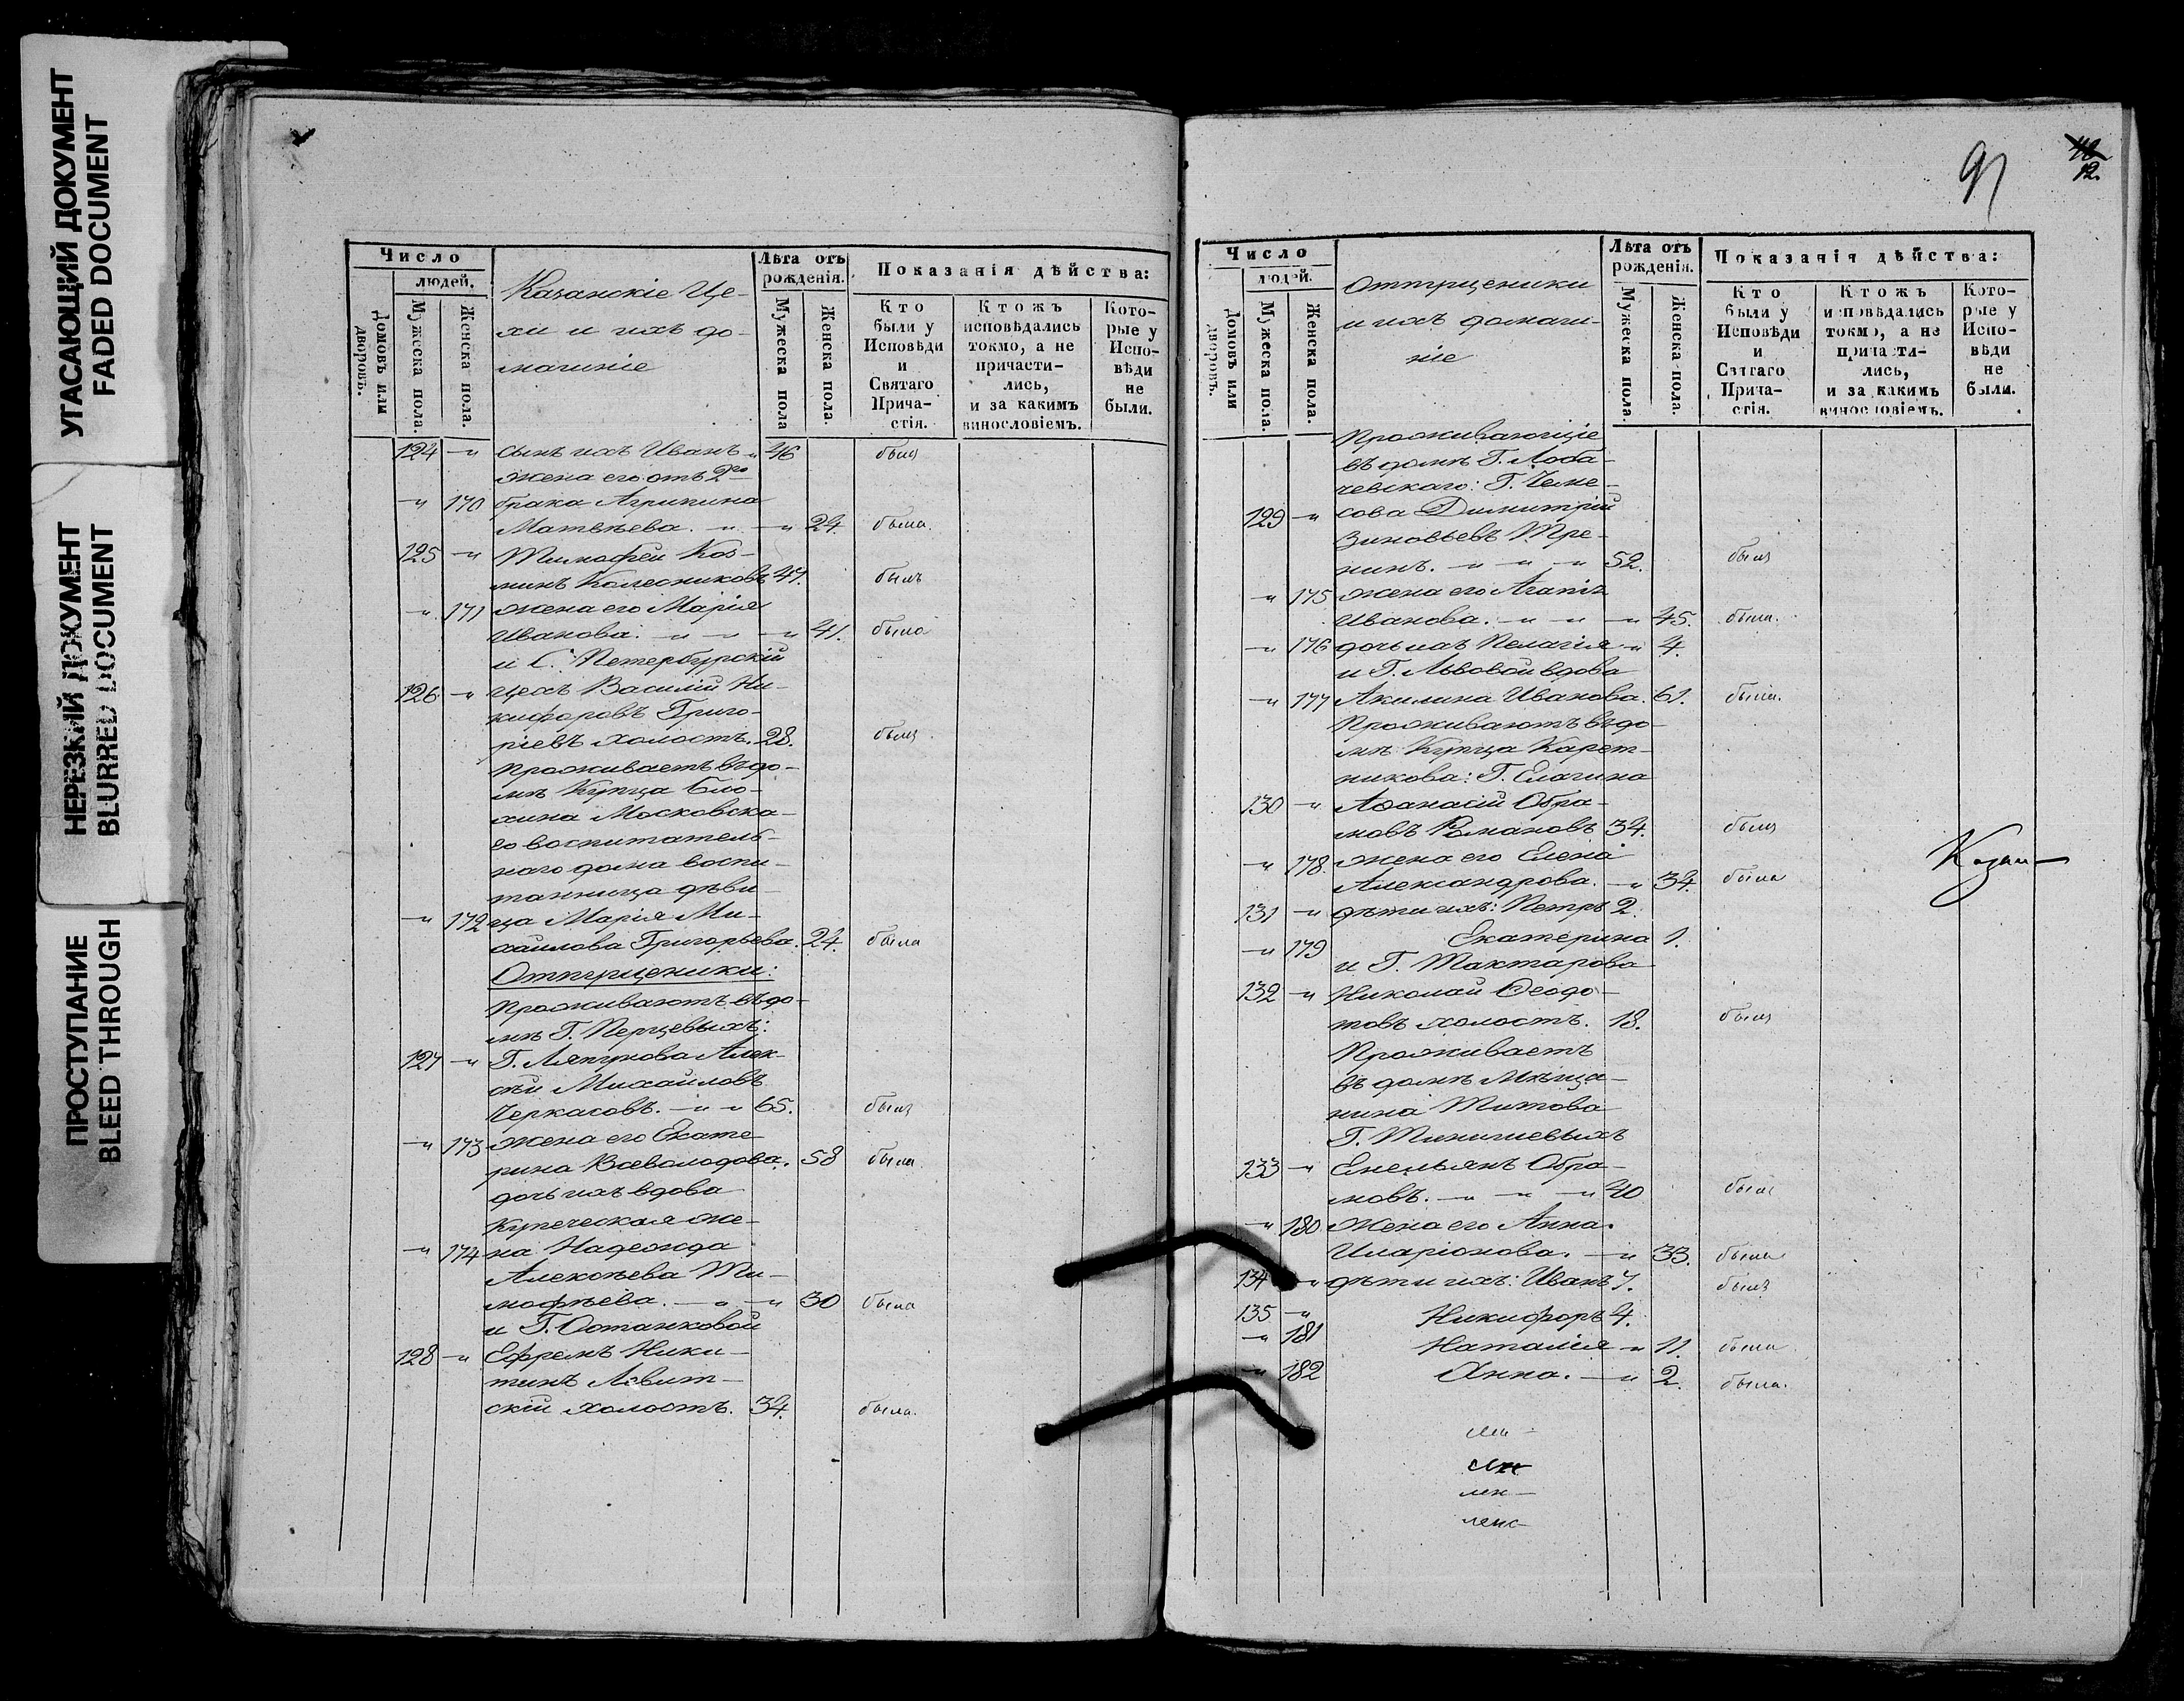 УГАСАЮЩИЙ ДОКУМЕНТ
FADED DOCUMENT
НЕРЕЗКИЙ ДОКУМЕНТ
BLURRED DOCUMENT
ПРОСТУПАНИЕ
BLEED THROUGH
Число
людей.
Домовъ или дворовъ.
Мужеска пола.
Женска пола.
Казанскіе Це-
хи и ихъ до-
машніе
Лѣта отъ рожденія.
Мужеска пола
Женска пола.
Показанія дѣйства:
Кто были у Исповѣди и Святаго Прича-стія.
Ктожъ исповѣдались токмо, а не причасти-лись, и за какимъ винословіемъ.
Кото-рые у Испо-вѣди не были.
124 -"- сынъ ихъ Иванъ " 46 былъ
жена его отъ 2го
-"- 170 брака Агрипина
Матвѣева. -"- -"- 24. была.
125 -"- Тимофей Коз-
минъ Колесниковъ 47. былъ
-"- 171 жена его Марія
Иванова. -"- -"- 41. была
и С. Петербурскій
126 -"- цехъ Василій Ни-
кифоровъ Григо-
ріевъ холостъ. 28. былъ
Проживаетъ въ до-
мѣ Купца Бло-
хина Московска-
го воспитатель-
наго дома воспи-
танница дѣви-
-"- 172 ца Марія Ми-
хайлова Григорьева. 24. была
Отпущеники:
Проживаютъ въ до-
мѣ Г. Перцевыхъ:
127 -"- Г. Ляпунова Алек-
сѣй Михайловъ
Черкасовъ. -"- " 65. былъ
-"- 173 жена его Екате-
рина Всеволодова. 58 была.
дочь ихъ вдова
купеческая же-
-"- 174 на Надежда
Алексѣева Ти-
мофѣева. -"- -"- 30 была
и Г. Останковой
128 -"- Ефремъ Ники-
тинъ Левит-
скій холостъ. 34. была.
91
12.
Число
людей.
Домовъ или дворовъ.
Мужеска пола.
Женска пола.
Отпущеники
и ихъ домаш-
ніе
Лѣта отъ рожденія.
Мужеска пола.
Женска пола.
Показанія дѣйства:
Кто были у Исповѣди и Святаго Прича-стія.
Ктожъ исповѣдались токмо, а не причасти-лись, и за какимъ винословіемъ.
Кото-рые у Испо-вѣди не были.
Проживающіе
въ домѣ Г. Лоба-
чевскаго: Г. Чеме-
129 -"- сова Димитрій
Зиновьевъ Тре-
нинъ. -"- -"- -"- 52. былъ
-"- 175 жена его Агапія
Иванова. -"- -"- -"- 45. была.
-"- 176 дочь ихъ Пелагія -"- 4.
и Г. Львовой вдова
-"- 177 Акилина Иванова. 61. была.
Проживаютъ въ до-
мѣ Купца Карет-
никова: Г. Елагина
130 -"- Афанасій Обра-
мовъ Романовъ 34. былъ
-"- 178. жена его Елена
Александрова. -"- 34. была
131 -"- дѣти ихъ: Петръ 2.
-"- 179 Екатерина 1.
и Г. Тахтарова
132 -"- Николай Ѳеодо-
товъ холостъ. 18. былъ
Проживаетъ
въ домѣ Мѣща-
нина Титова
133 -"- Емельянъ Обра-
мовъ. -"- -"- -"- 40 былъ
-"- 180 жена его Анна.
Иларіонова. -"- 33. была
134 -"- дѣти ихъ: Иванъ 7. былъ
135 -"- Никифоръ 4.
-"- 181 Наталія -"- 11. была
-"- 182 Анна. -"- 2. была.
Казан-